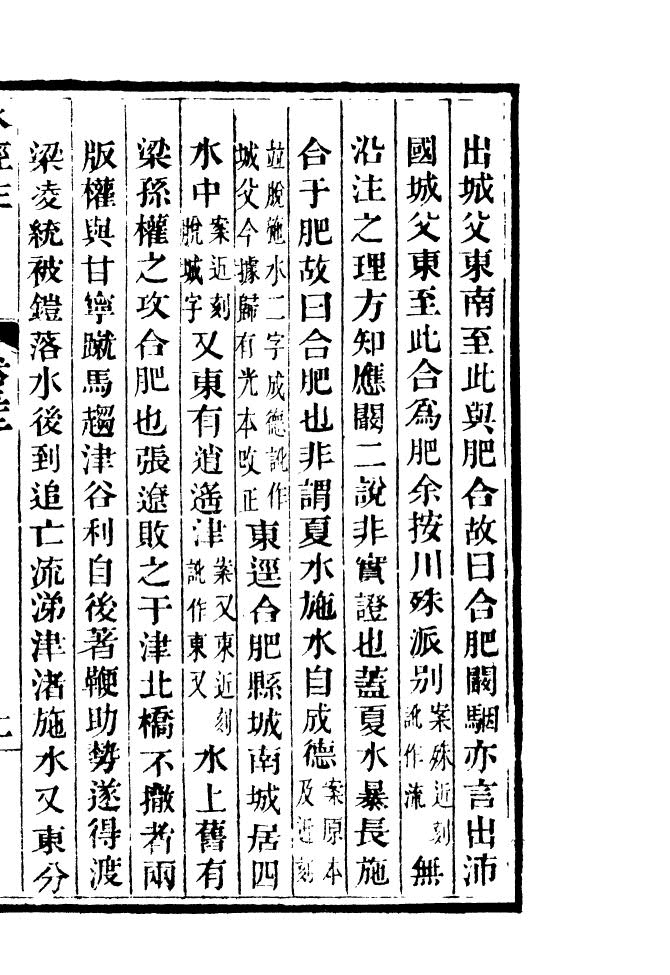 出城父東南至此與肥合故曰合肥闞駰亦言出沛
國城父東至此合爲肥余按川殊派別案殊近刻訛作流無
沿注之理方知應闞二說非實證也蓋夏水暴長施
合于肥故曰合肥也非謂夏水施水自成德案原本及近刻
並脫施水二字成德訛作城父今據歸有光本改正東逕合肥縣城南城居四
水中案近刻脫城字又東有逍遙津案又東近刻訛作東又水上舊有
梁孫權之攻合肥也張遼敗之于津北橋不撤者兩
版權與甘寧蹴馬趨津谷利自後著鞭助勢遂得渡
梁凌統被鎧落水後到追亡流涕津渚施水又東分
水經注